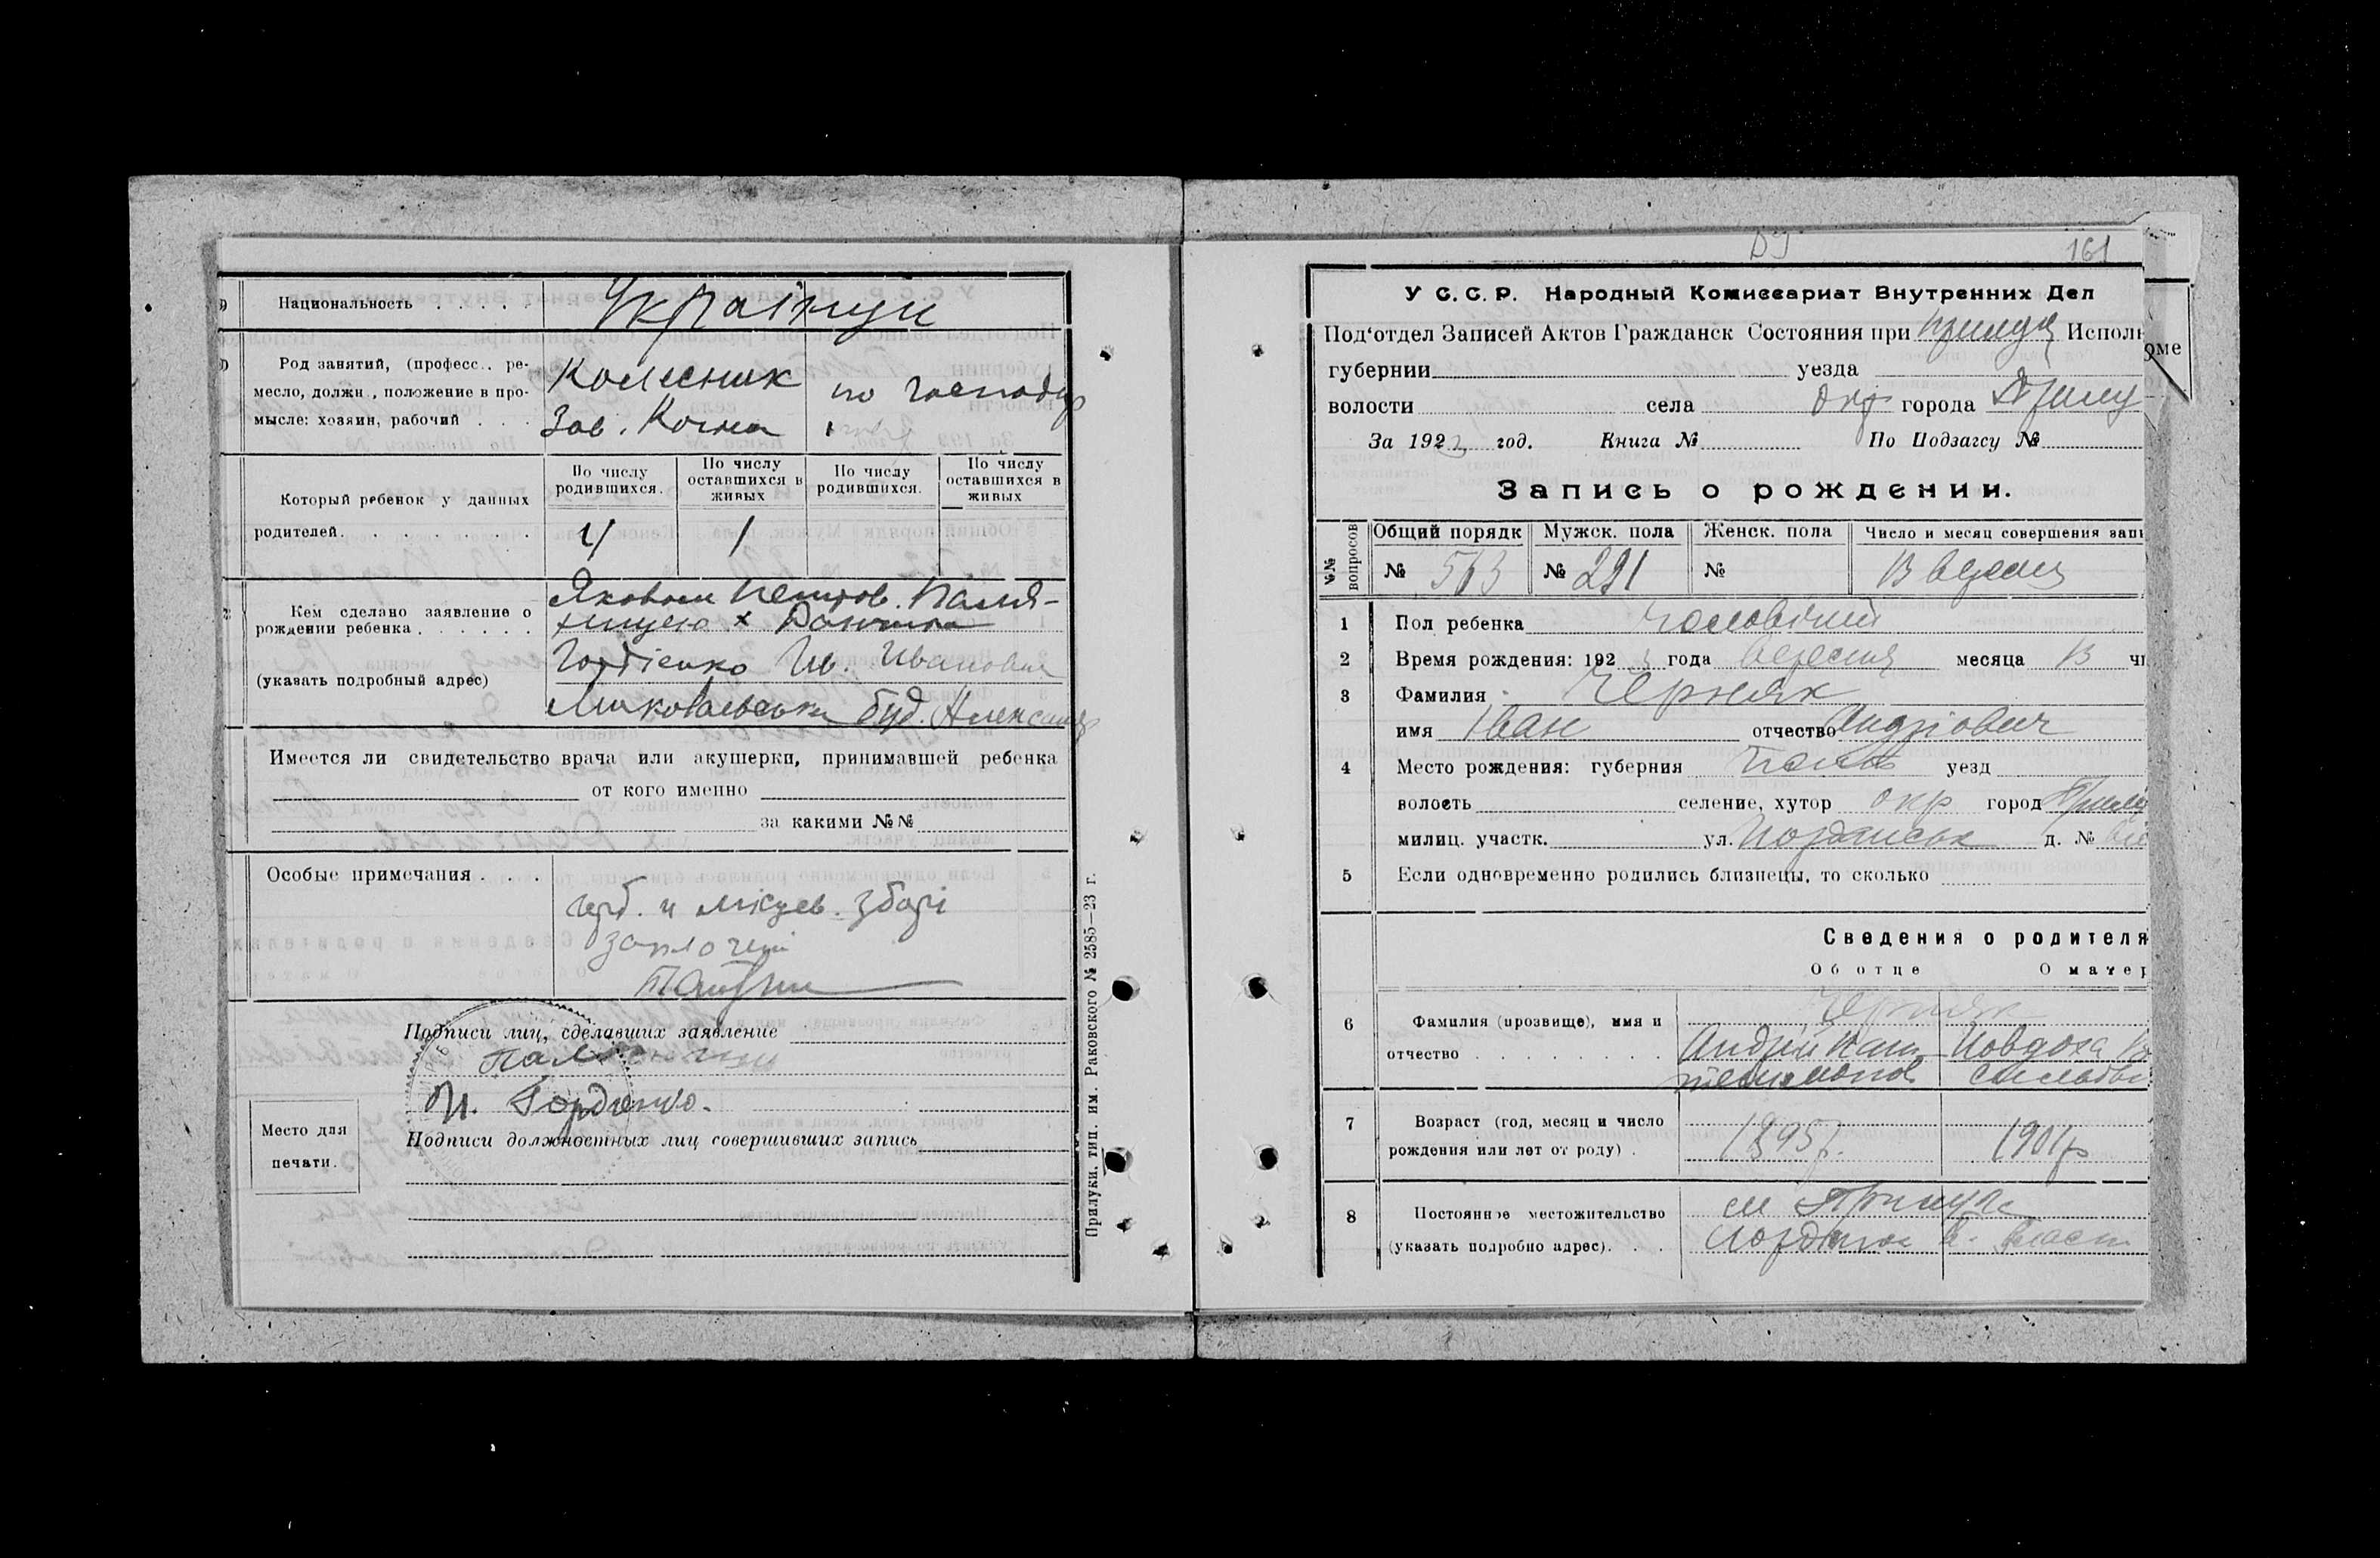 Национальность . . . . .
Українці
Род занятий, (професс., ре-
месло, должн., положение в про-
мысле: хозяин, рабочий . . .
Колесник
Зав.
по господ
Который ребенок у данных
родителей. . . . . . . .
По числу родившихся.
По числу оставшихся в живых
По числу родившихся.
По числу оставшихся в живых
4 1
Кем сделано заявление о
рождении ребенка . . . . . .
(указать подробный адрес)
Яковом Петров. Паля-
ницею х
Гордієнко Ив. Иванович
буд.
Имеется ли свидетельство врача или акушерки, принимавшей ребенка
от кого именно
за какими №№
Особые примечания . . .
герб. и місцев. збори
заплочені
Подписи лиц, сделавших заявление
И. Гордиенко.
Подписи должностных лиц совершивших запись
Место для
печати.
Прилуки, тип. им. Раковского № 2585—23 г.
161
У С. С. Р. Народный Комиссариат Внутренних Дел
Под'отдел Записей Актов Гражданск Состояния при Исполк
оме
губернии уезда
волости села окр города Прилу
За 192 год. Книга № По Подзагсу №
Запись о рождении.
№№ вопросов
Общий порядк Мужск. пола Женск. пола Число и месяц совершения запи
№ 513 № 291 № 13 вересня
1 Пол ребенка чоловічий
2 Время рождения: 192 года вересня месяца 13 чи
3 Фамилия Черняк
имя Іван отчество Андріович
4 Место рождения: губерния Полт уезд
волость селение, хутор окр город Прилу
милиц. участк. ул. Иорданськ д. №
5 Если одновременно родились близнецы, то сколько
Сведения о родителя
Об отце О матер
6 Фамилия (прозвище), имя и
отчество . . . . . . . .
Черняк
Андрій Пан-
телимонов.
Иовдоха
7 Возраст (год, месяц и число
рождения или лет от роду) .
1895р. 1901р
8 Постоянное местожительство
(указать подробно адрес). . .
м Прилуки
Иорданськ в. власн